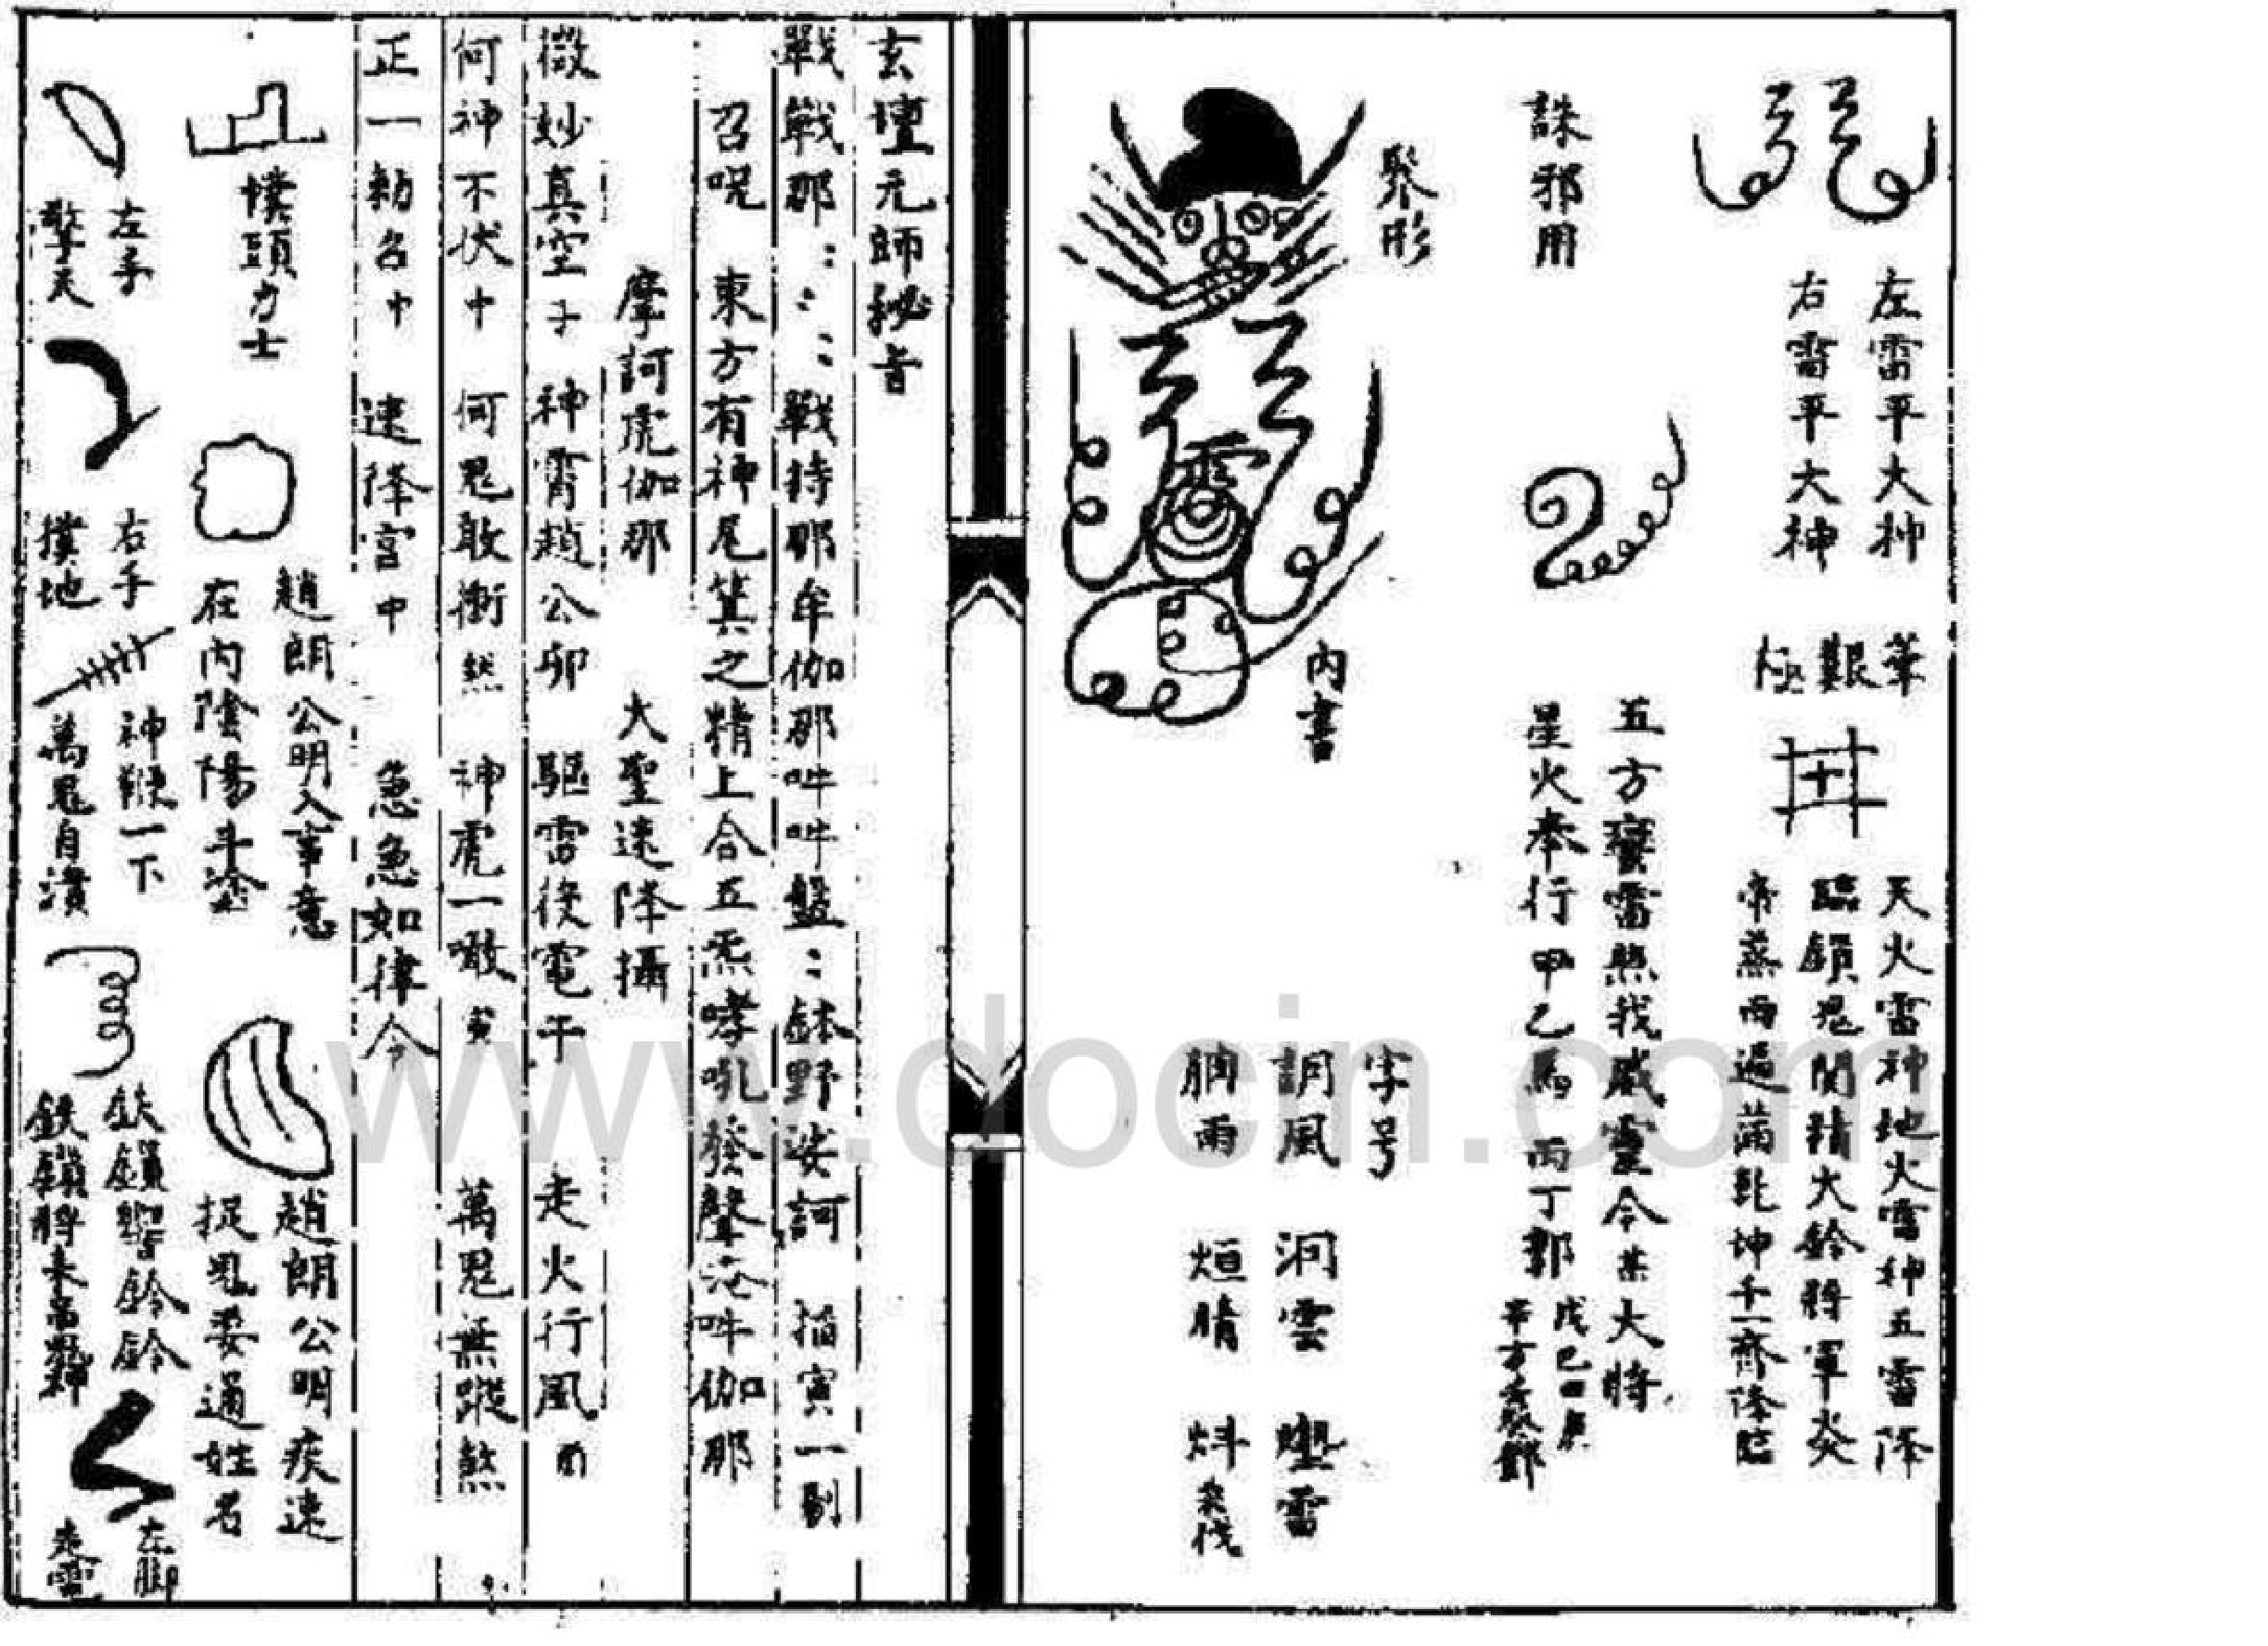 左雷平大神
右雷平大神
天火雷神地火雷神五雷降
臨鎖鬼関精火鈴將軍炎
雨遍滿乾坤千一齊降臨
誅邪用
五方蠻雷無我威靈令某大將
星火奉行甲乙馬丙丁郭
戊己田
辛方
聚形
內書
字号
調風 洞雲 雷
雨 烜晴 炓
玄壇元師秘音
戰戰那::::戰持那牟伽那吽吽盤::鉢野娑訶 掐寅一剔
召呪 東方有神尾箕之精上合五炁哮吼發聲唵吽伽那
摩訶虎伽那 大聖速降攝
微妙真空子 神霄趙公卯 驅雷役電午 走火行風酉
何神不伏中 何鬼敢衝然 神虎一噉亥 萬鬼無蹤煞
正一勅召中 速降宮中 急急如律令
幞頭力士
趙朗公明入事意
在內陰陽斗塗
趙朗公明疾速
捉鬼要通姓名
左手
擎天
右手
撲地
神鞭一下
萬鬼自潰
鉄鎖響鈴鈴
鉄鎖將來
左脚
走雷
www.docin.com